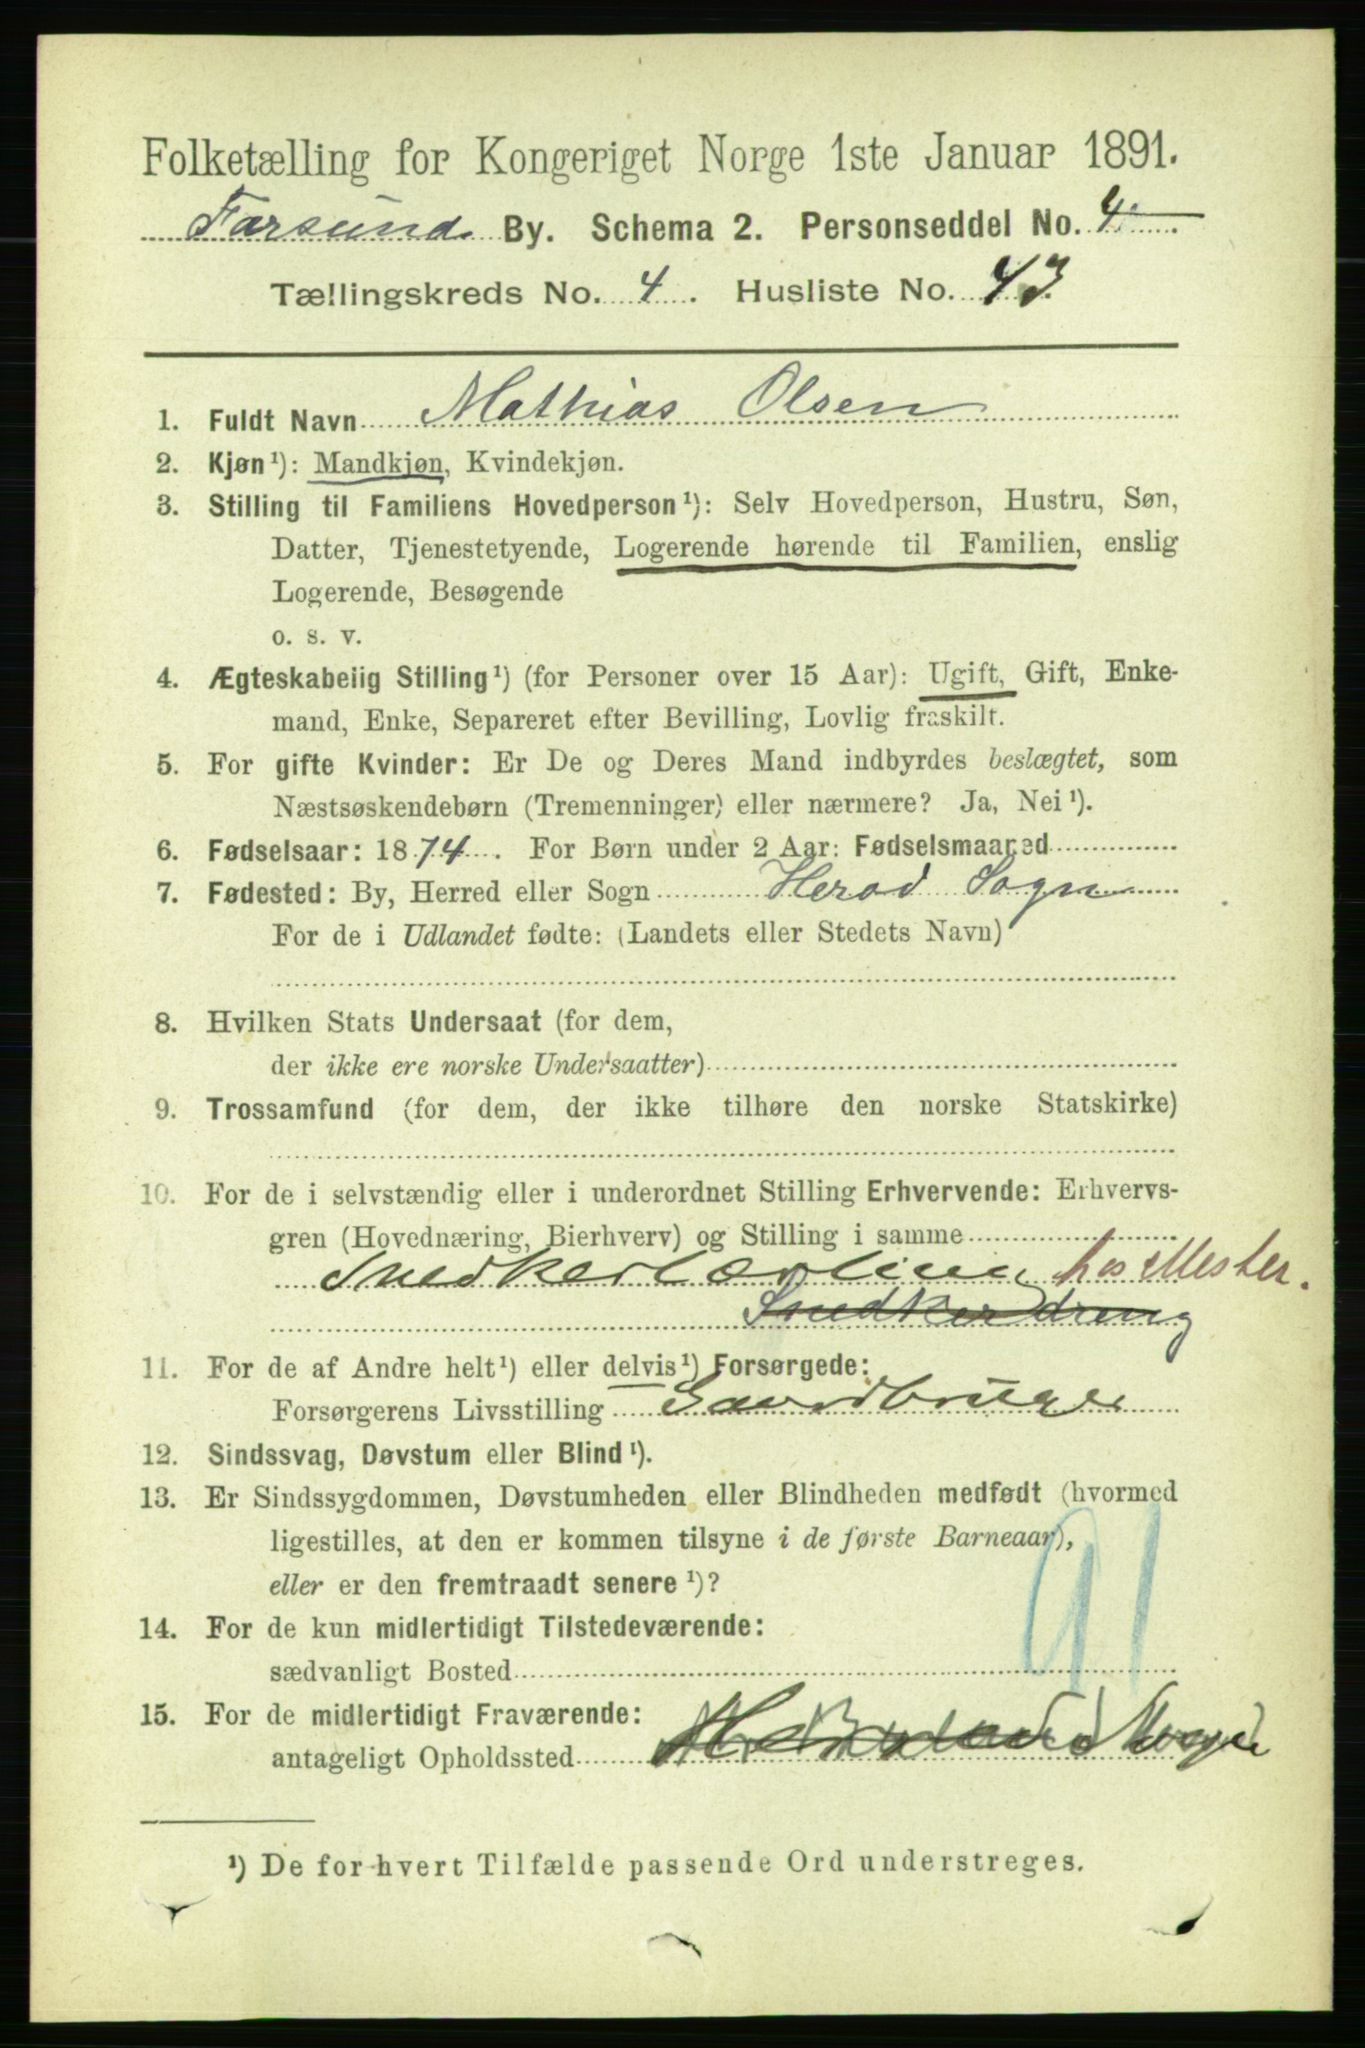 Folketælling for Kongeriget Norge 1ste Januar 1891.
Farsund By. Schema 2. Personseddel No. 4.
Tællingskreds No. 4. Husliste No. 43.
1. Fuldt Navn Mathias Olsen
2. Kjøn ¹): Mandkjøn, Kvindekjøn.
3. Stilling til Familiens Hovedperson ¹): Selv Hovedperson, Hustru, Søn,
Datter, Tjenestetyende, Logerende hørende til Familien, enslig
Logerende, Besøgende
o. s. v.
4. Ægteskabeiig Stilling ¹) (for Personer over 15 Aar): Ugift, Gift, Enke-
mand, Enke, Separeret efter Bevilling, Lovlig fraskilt.
5. For gifte Kvinder: Er De og Deres Mand indbyrdes beslægtet, som
Næstsøskendebørn (Tremenninger) eller nærmere? Ja, Nei ¹).
6. Fødselsaar: 1874. For Børn under 2 Aar: Fødselsmaaned
7. Fødested: By, Herred eller Sogn Herad Sogn
For de i Udlandet fødte: (Landets eller Stedets Navn)
8. Hvilken Stats Undersaat (for dem,
der ikke ere norske Undersaatter)
9. Trossamfund (for dem, der ikke tilhøre den norske Statskirke)
10. For de i selvstændig eller i underordnet Stilling Erhvervende: Erhvervs-
gren (Hovednæring, Bierhverv) og Stilling i samme
Snedkerlærling hos Mester.
Snedkerdreng
11. For de af Andre helt ¹) eller delvis ¹) Forsørgede:
Forsørgerens Livsstilling Gaardbruger
12. Sindssvag, Døvstum eller Blind ¹).
13. Er Sindssygdommen, Døvstumheden eller Blindheden medfødt (hvormed
ligestilles, at den er kommen tilsyne i de første Barneaar),
eller er den fremtraadt senere ¹)?
91
14. For de kun midlertidigt Tilstedeværende:
sædvanligt Bosted
15. For de midlertidigt Fraværende:
antageligt Opholdssted
¹) De for hvert Tilfælde passende Ord understreges.